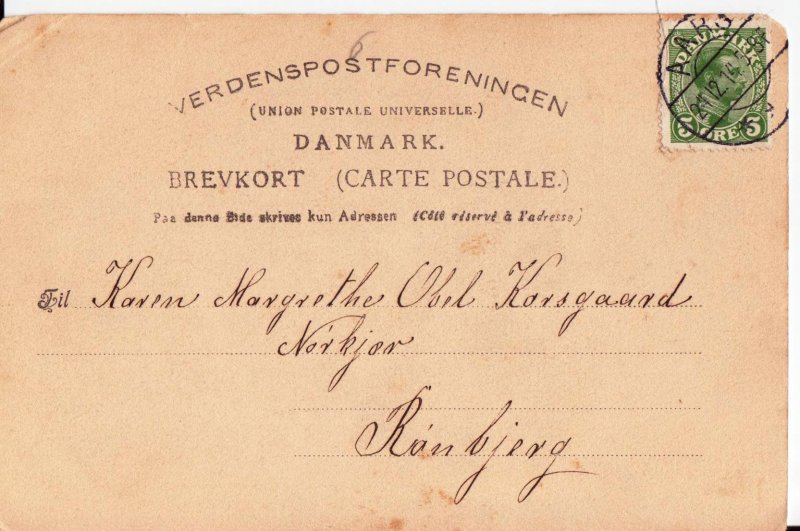 6
VERDENSPOSTFORENINGEN
(UNION POSTALE UNIVERSELLE.)
DANMARK.
BREVKORT (CARTE POSTALE.)
Paa denne Side skrives kun Adressen (Côté réservé à l'adresse)
DANMARK
5 ØRE 5
AARS
Til Karen Margrethe Obel Korsgaard
Nörkjær
Rönbjerg